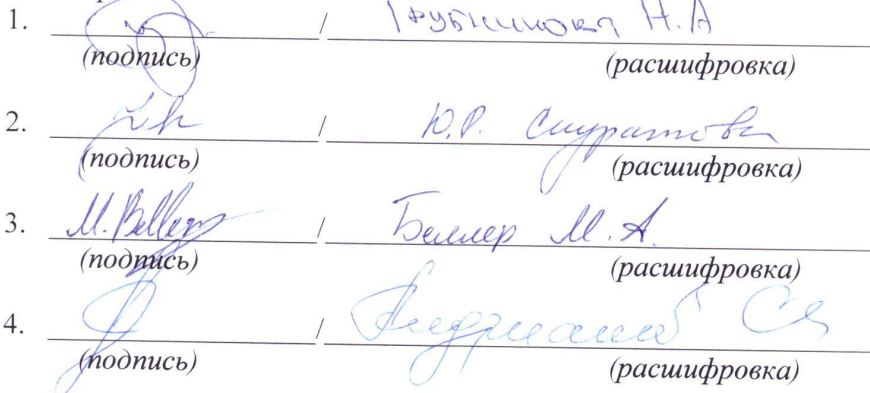 1. / Трубникова Н.А
(подпись) (расшифровка)
2. / Ю.Р. Скуратова
(подпись) (расшифровка)
3. M. Beller / Беллер М.А.
(подпись) (расшифровка)
4. /
(подпись) (расшифровка)